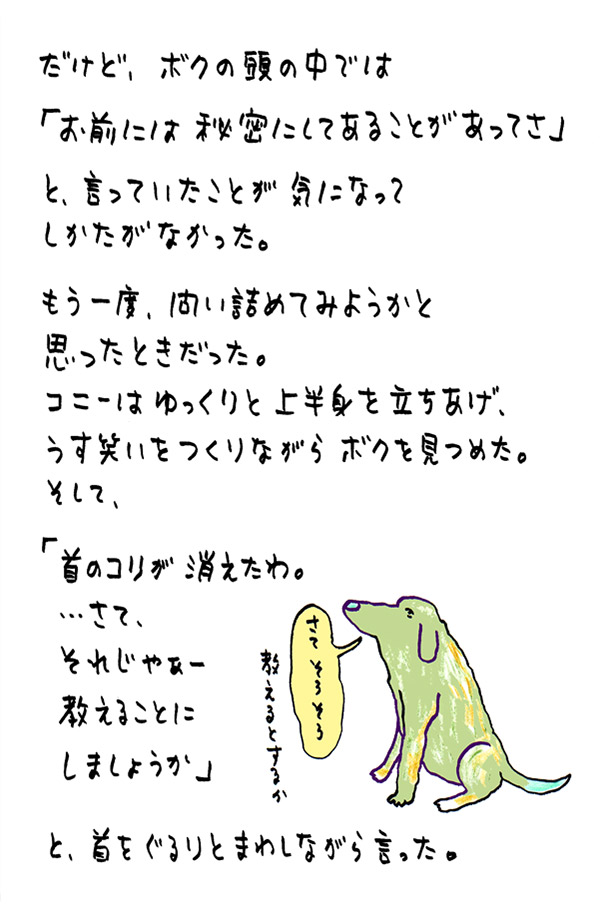 だけど、ボクの頭の中では
「お前には 秘密にしてあることがあってさ」
と、言っていたことが 気になって
しかたがなかった。
もう一度、問い詰めてみようかと
思ったときだった。
コニーはゆっくりと 上半身を立ちあげ、
うす笑いをつくりながら ボクを見つめた。
そして、
「首のコリが 消えたわ。
…さて、
それじゃぁー
教えることに
しましょうか」
さて そろそろ
教えるとするか
と、首をぐるりとまわしながら言った。